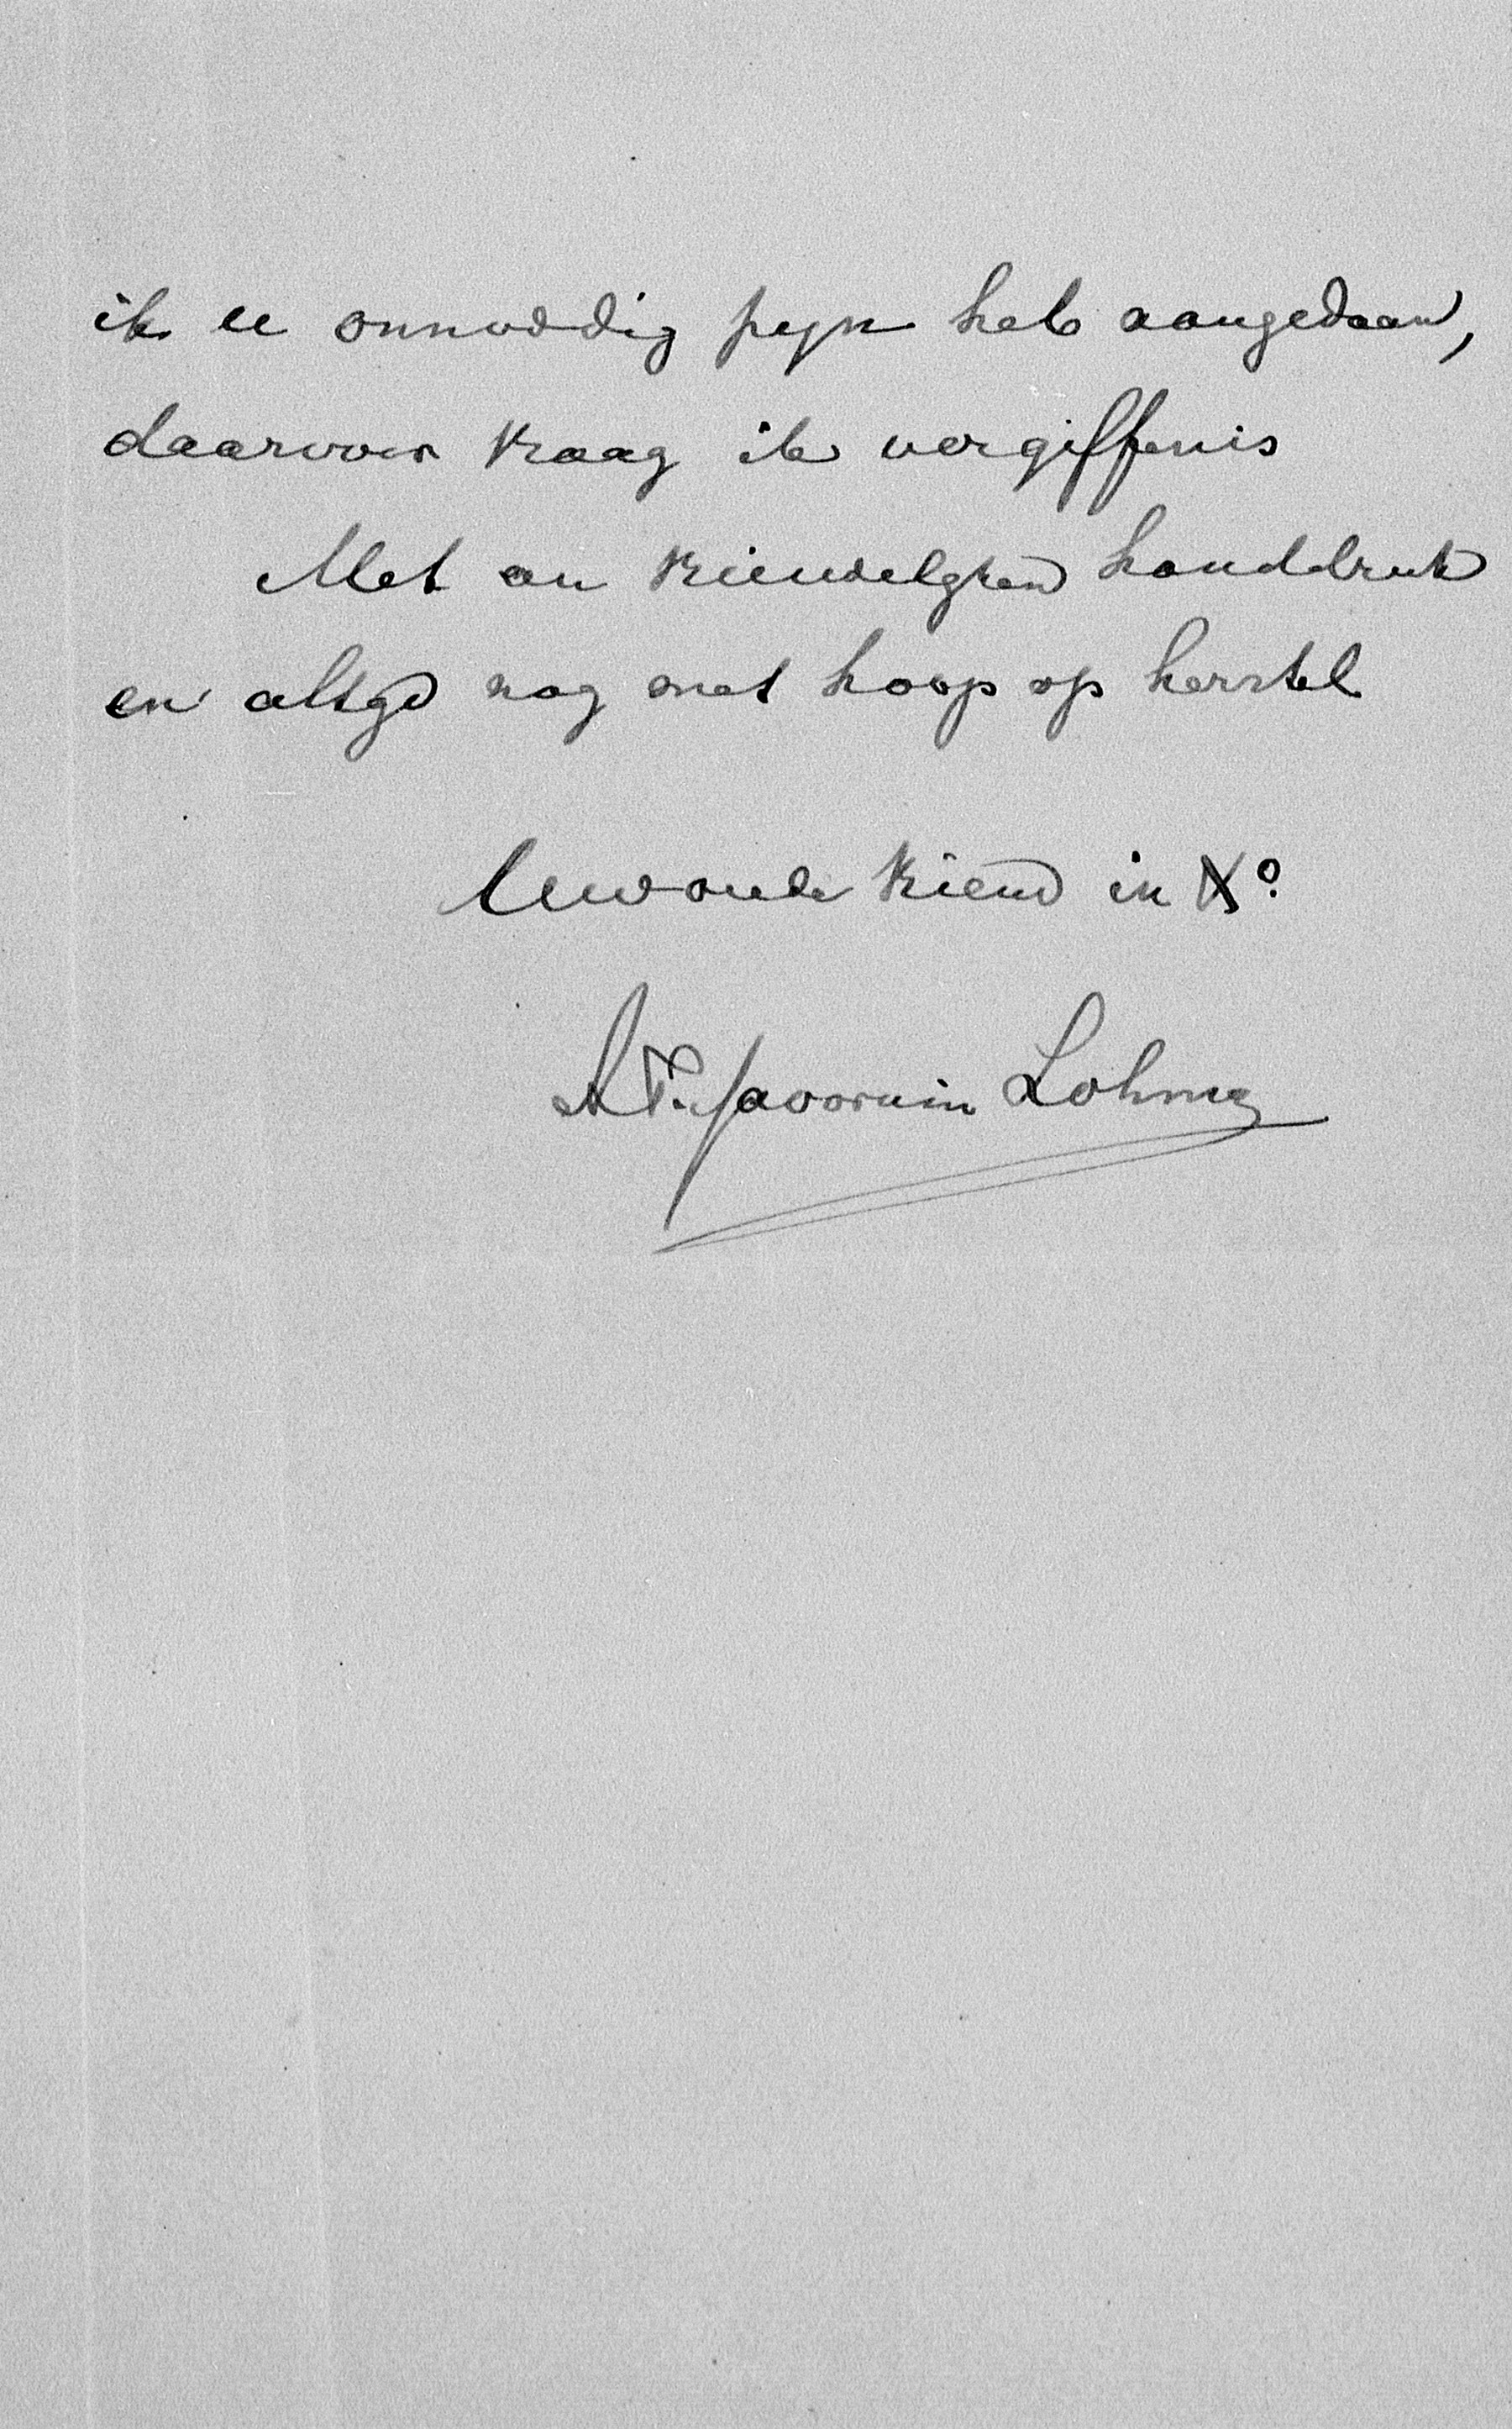 ik u onnoodig pijn heb aangedaan,
daarvoor vraag ik vergiffenis
Met een vriendelijken handdruk
en altijd nog met hoop op herstel
Uw oude vriend in Xo
AF. Savornin Lohman